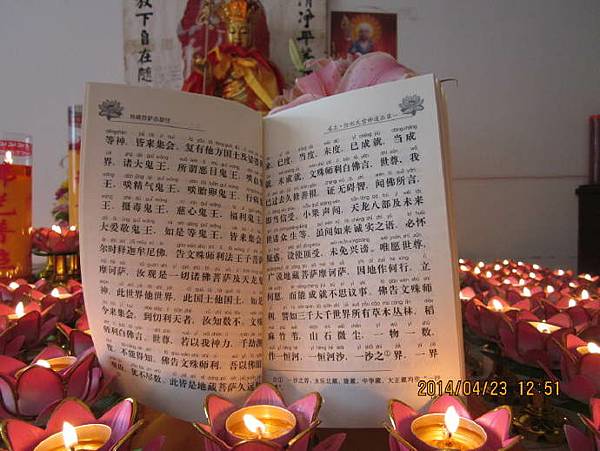 放下自在随
清净平
地藏菩萨本愿经
卷上·忉利天宫神通品第一
等神，皆来集会。复有他方国土及娑婆
界，诸大鬼王，所谓恶目鬼王、
王、啖精气鬼王、啖胎卵鬼王、行病
王、摄毒鬼王、慈心鬼王、福利鬼王
大爱敬鬼王，如是等鬼王，皆来集会
尔时释迦牟尼佛，告文殊师利法王子菩
摩诃萨，汝观是一切诸佛菩萨及天
神，此世界他世界，此国土他国土，如是
今来集会，到忉利天者，汝知数不。文殊
师利白佛言，世尊，若以我神力，千劫测
不能得知。佛告文殊师利，吾以佛眼
犹不尽数。此皆是地藏菩萨久远
来，已度、当度、未度，已成就、当成
就、未成就。文殊师利白佛言，世尊，我
已过去久修善根，证无碍智，闻佛所言，
即当信受。小果声闻、天龙八部及未来
世诸众生等，虽闻如来诚实之语，必怀
疑惑，设使顶受，未免兴谤。唯愿世尊，
广说地藏菩萨摩诃萨，因地作何行，立
何愿，而能成就不思议事。佛告文殊师
利，譬如三千大千世界所有草木丛林、稻
麻竹苇、山石微尘，一物一数，
作一恒河，一恒河沙，一沙之①界，一界
2014/04/23 12:51